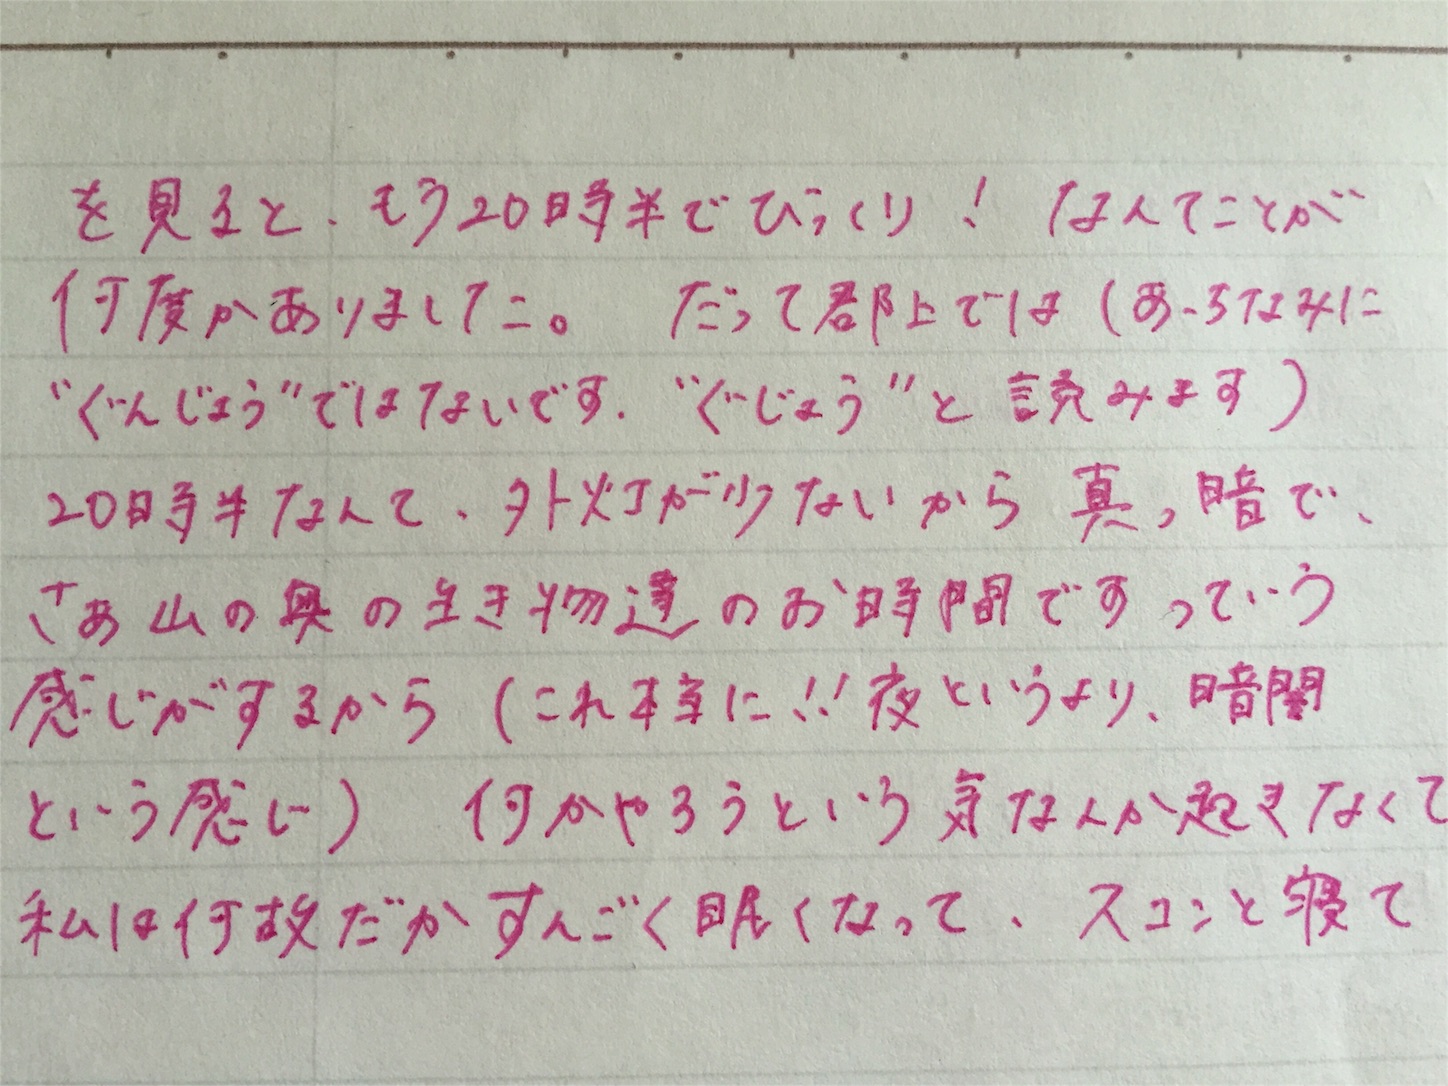 を見ると、もう20時半でびっくり! なんてことが
何度かありました。 だって郡上では(あ、ちなみに
"ぐんじょう"ではないです、"ぐじょう"と読みます)
20時半なんて、外灯が少ないから真っ暗で、
さあ山の奥の生き物達のお時間ですっていう
感じがするから(これ本当に!!夜というより、暗闇
という感じ) 何かやろうという気なんか起きなくて
私は何故だかすんごく眠くなって、スコンと寝て